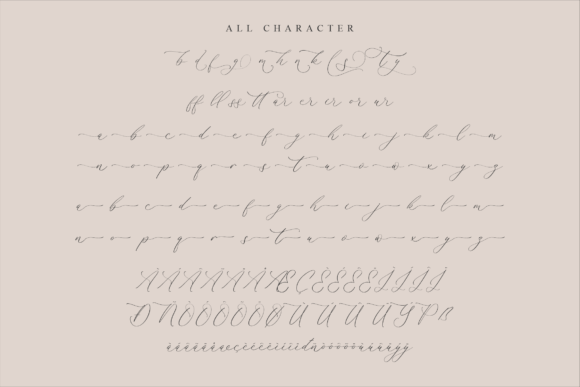 ALL CHARACTER
b d f g o m h n k l s o t y
ff ll ss tt ar er er or ur
a b c d e f g h i j k l m
n o p q r s t u v w x y z
a b c d e f g h i j k l m
n o p q r s t u v w x y z
À Á Â Ã Ä Å Æ Ç È É Ê Ë Ì Í Î Ï
Ð Ñ Ò Ó Ô Õ Ö Ø Ù Ú Û Ü Ý Þ ß